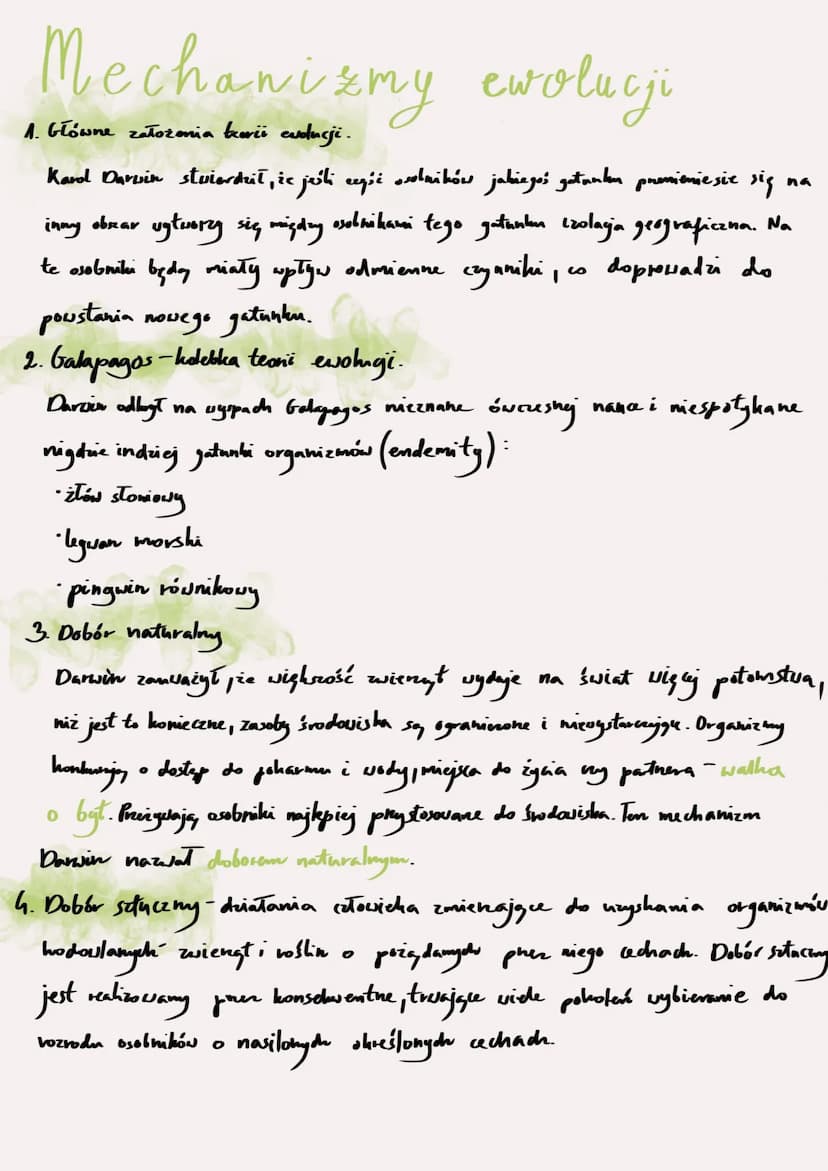 Mechanizmy ewolucji
1. Główne założenia teorii ewolucji.
Karol Darwin stwierdził, że jeśli część osobników jakiegoś gatunku przemieniesie się na
inny obszar wytworzy się między osobnikami tego gatunku izolacja geograficzna. Na
te osobniki będą miały wpływ odmienne czynniki, co doprowadzi do
powstania nowego gatunku.
2. Galapagos - kolebka teorii ewolucji.
Darwin odkrył na wyspach Galapagos nieznane ówczesnej nauce i niespotykane
nigdzie indziej gatunki organizmów (endemity):
· żółw słoniowy
· legwan morski
· pingwin równikowy
3. Dobór naturalny
Darwin zauważył, że większość zwierząt wydaje na świat więcej potomstwa,
niż jest to konieczne, zasoby środowiska są ograniczone i niewystarczające. Organizmy
konkurują o dostęp do pokarmu i wody, miejsca do życia czy partnera - walka
o byt. Przeżywają osobniki najlepiej przystosowane do środowiska. Ten mechanizm
Darwin nazwał doborem naturalnym.
4. Dobór sztuczny - działania człowieka zmierzające do uzyskania organizmów
hodowlanych zwierząt i roślin o pożądanych przez niego cechach. Dobór sztuczny
jest realizowany przez konsekwentne, trwające wiele pokoleń wybieranie do
rozrodu osobników o nasilonych określonych cechach.